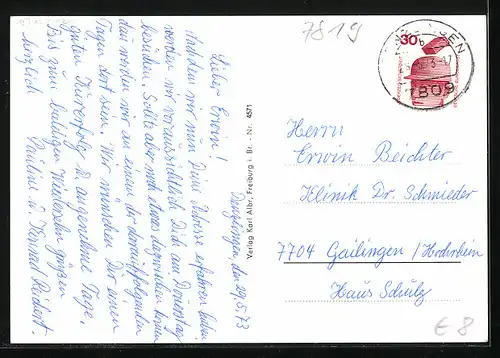 7819
30
7809
Denzlingen, den 29.5.73
Lieber Erwin!
Nachdem wir nun Deine Adresse erfahren haben
werden wir voraussichtlich Dich am Donnerstag
besuchen. Sollte aber noch etwas dazwischen kommen
dann werden wir an einem der darauffolgenden
Tagen dort sein. Wir wünschen Dir einen
guten Kurerfolg & angenehme Tage.
Bis zum baldigen Wiedersehn grüßen
herzlich
Pauline u.
Verlag Karl Albr., Freiburg i. Br. - Nr. 4571
Herrn
Erwin Beichter
Klinik Dr. Schmieder
7704 Gailingen/Hochrhein
Haus Schulz
€ 8